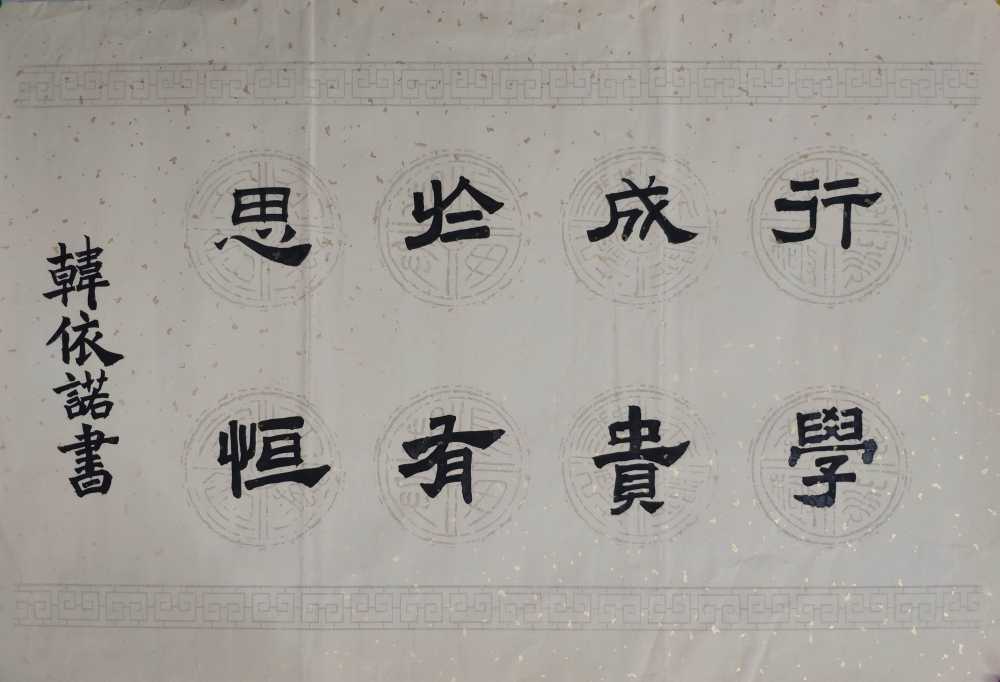 行成於思
學貴有恒
韓依諾書